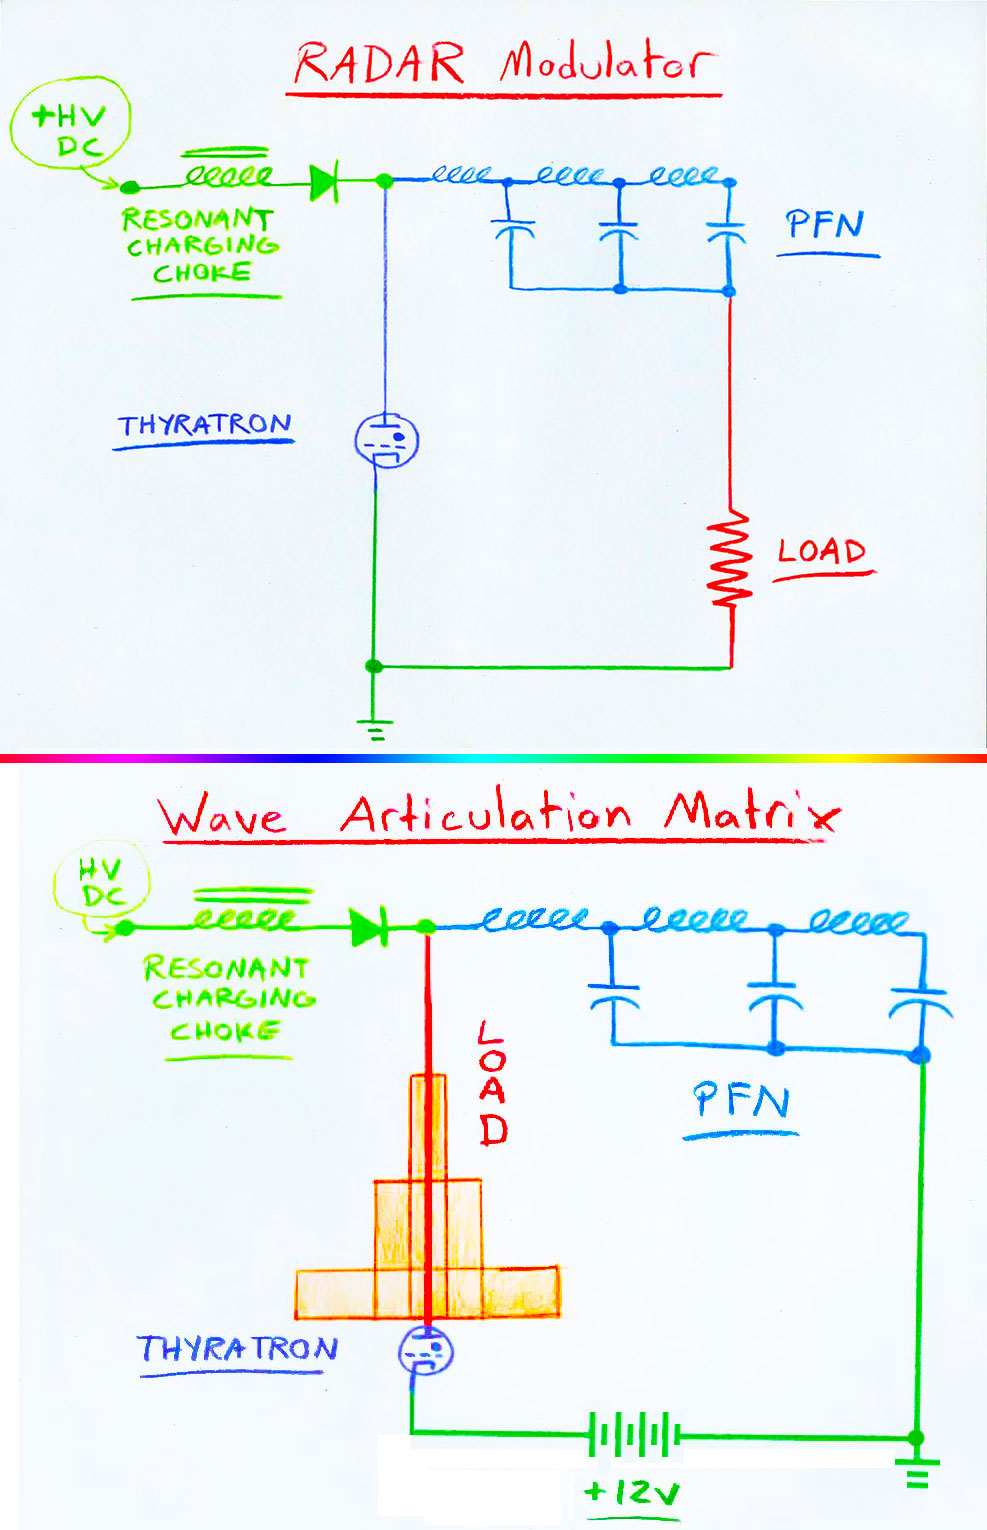 RADAR Modulator
+HV
DC
RESONANT
CHARGING
CHOKE
PFN
THYRATRON
LOAD
Wave Articulation Matrix
HV
DC
RESONANT
CHARGING
CHOKE
LOAD
PFN
THYRATRON
+12V